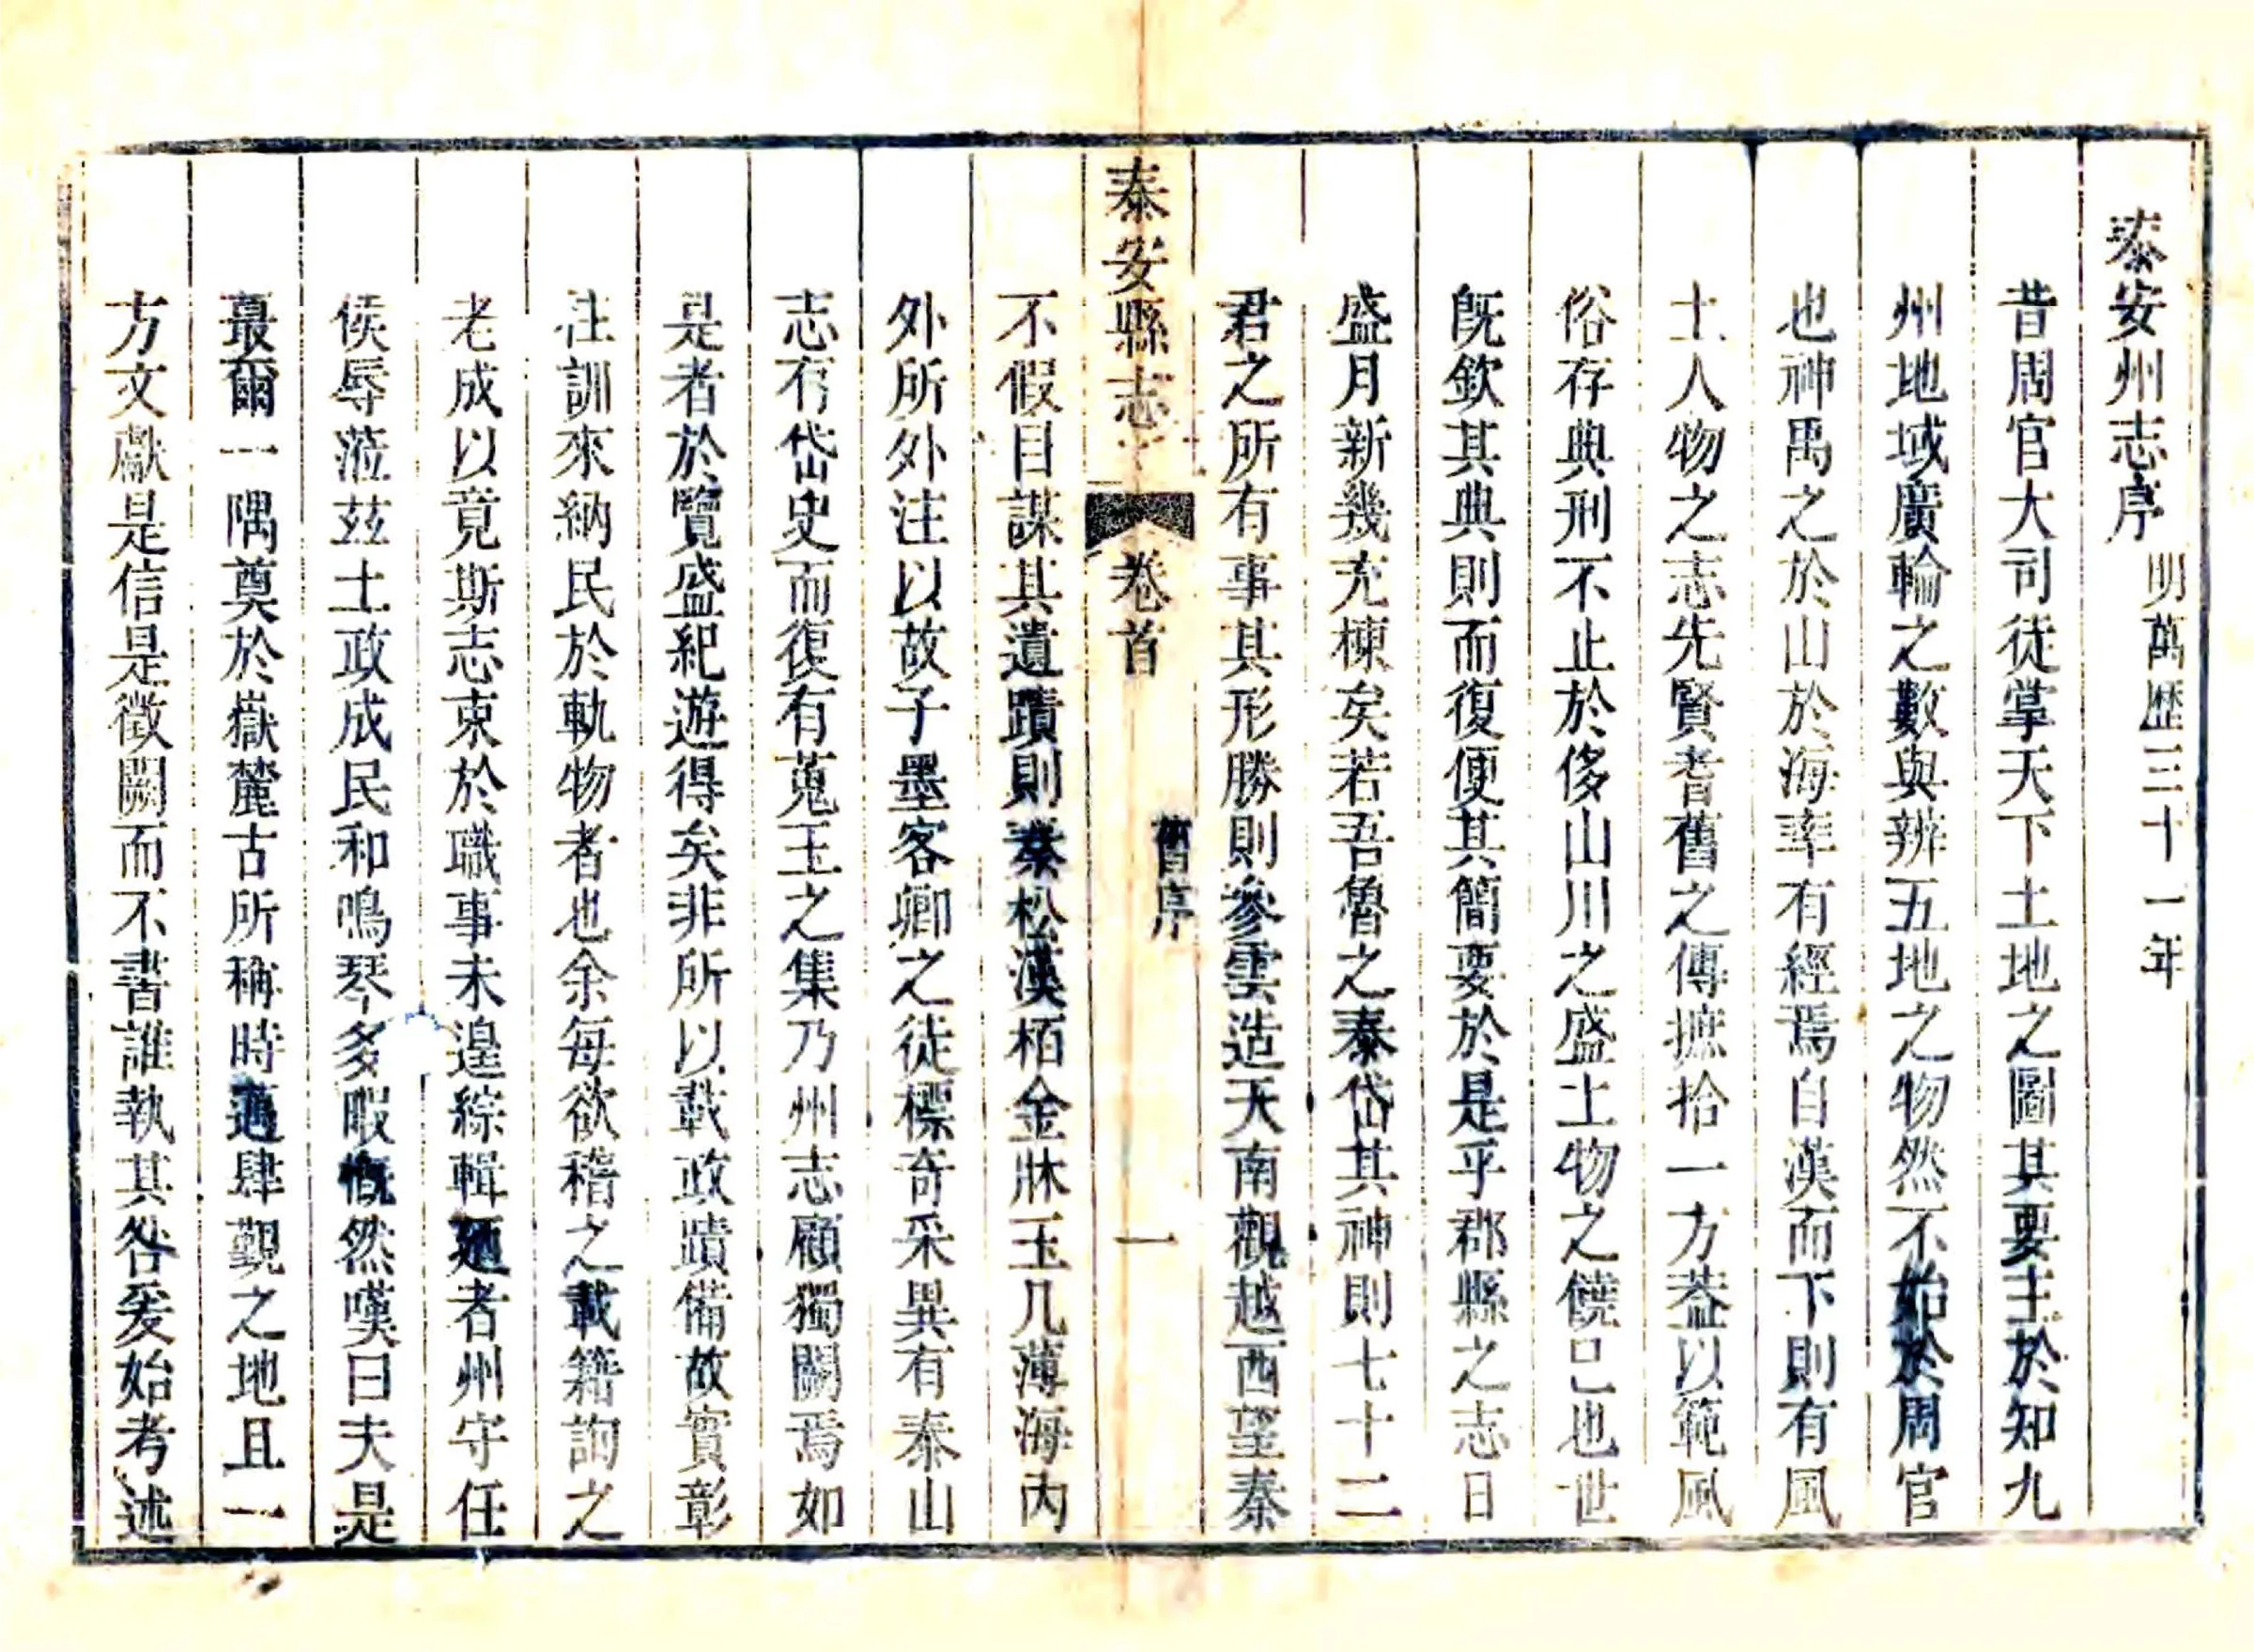 泰安州志序 明萬歷三十一年
昔周官大司徒掌天下土地之圖其要主於知九
州地域廣輪之數與辨五地之物然不始於周官
也神禹之於山於海率有經焉自漢而下則有風
土人物之志先賢耆舊之傳摭拾一方葢以範風
俗存典刑不止於侈山川之盛土物之饒已也世
旣欽其典則而復便其簡要於是乎郡縣之志日
盛月新幾充棟矣若吾魯之泰岱其神則七十二
君之所有事其形勝則參雲造天南觀越西望秦
泰安縣志 卷首 舊序 一
不假目謀其遺蹟則秦松漢栢金牀玉几薄海內
外所外注以故子墨客卿之徒標奇采異有泰山
志有岱史而復有蒐玉之集乃州志顧獨闕焉如
是者於覽盛紀遊得矣非所以載政蹟備故實彰
注訓來納民於軌物者也余每欲稽之載籍詢之
老成以竟斯志束於職事未遑綜輯廼者州守任
侯辱蒞茲土政成民和鳴琴多暇慨然嘆曰夫是
蕞爾一隅奠於嶽麓古所稱時邁肆覲之地且一
方文獻是信是徵闕而不書誰執其咎爰始考述